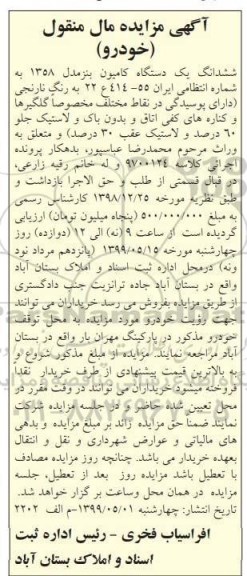 آگهی مزایده مال منقول
(خودرو)
ششدانگ یک دستگاه کامیون بنزمدل ۱۳۵۸ به
شماره انتظامی ایران ۵۵- ۴۱۴ع ۲۲ به رنگ نارنجی
(دارای پوسیدگی در نقاط مختلف مخصوصاً گلگیرها
و کناره های کفی اتاق و بدون باک و لاستیک جلو
۶۰ درصد و لاستیک عقب ۳۰ درصد) و متعلق به
وراث مرحوم محمدرضا عباسپور، بدهکار پرونده
اجرائی کلاسه ۹۷۰۰۱۲۴ و له خانم رقیه زارعی،
در قبال قسمتی از طلب و حق الاجرا بازداشت و
طبق نظریه مورخه ۱۳۹۸/۱۲/۲۵ کارشناس رسمی
به مبلغ ۵۰۰/۰۰۰/۰۰۰ (پنجاه میلیون تومان) ارزیابی
گردیده است از ساعت ۹ (نه) الی ۱۲ (دوازده) روز
چهارشنبه مورخه ۱۳۹۹/۰۵/۱۵ (پانزدهم مرداد نود
ونه) درمحل اداره ثبت اسناد و املاک بستان آباد
واقع در بستان آباد جاده ترانزیت جنب دادگستری
از طریق مزایده بفروش می رسد خریداران می توانند
جهت رویت خودرو مورد مزایده به محل توقف
خودرو مذکور در پارکینگ مهران بار واقع در بستان
آباد مراجعه نمایند. مزایده از مبلغ مذکور شروع و
به بالاترین قیمت پیشنهادی از طرف خریدار نقدا
فروخته میشود خریداران می توانند در وقت مقرر در
محل تعیین شده حاضر و در جلسه مزایده شرکت
نمایند ضمنا حق مزایده زائد بر مبلغ مزایده و بدهی
های مالیاتی و عوارض شهرداری و نقل و انتقال
بعهده خریدار می باشد. چنانچه روز مزایده مصادف
با تعطیل باشد مزایده روز بعد از تعطیل، جلسه
مزایده در همان محل وساعت بر گزار خواهد شد.
تاریخ انتشار: چهارشنبه ۱۳۹۹/۰۵/۰۱-م الف ۲۲۰۲
افراسیاب فخری - رئیس اداره ثبت
اسناد و املاک بستان آباد